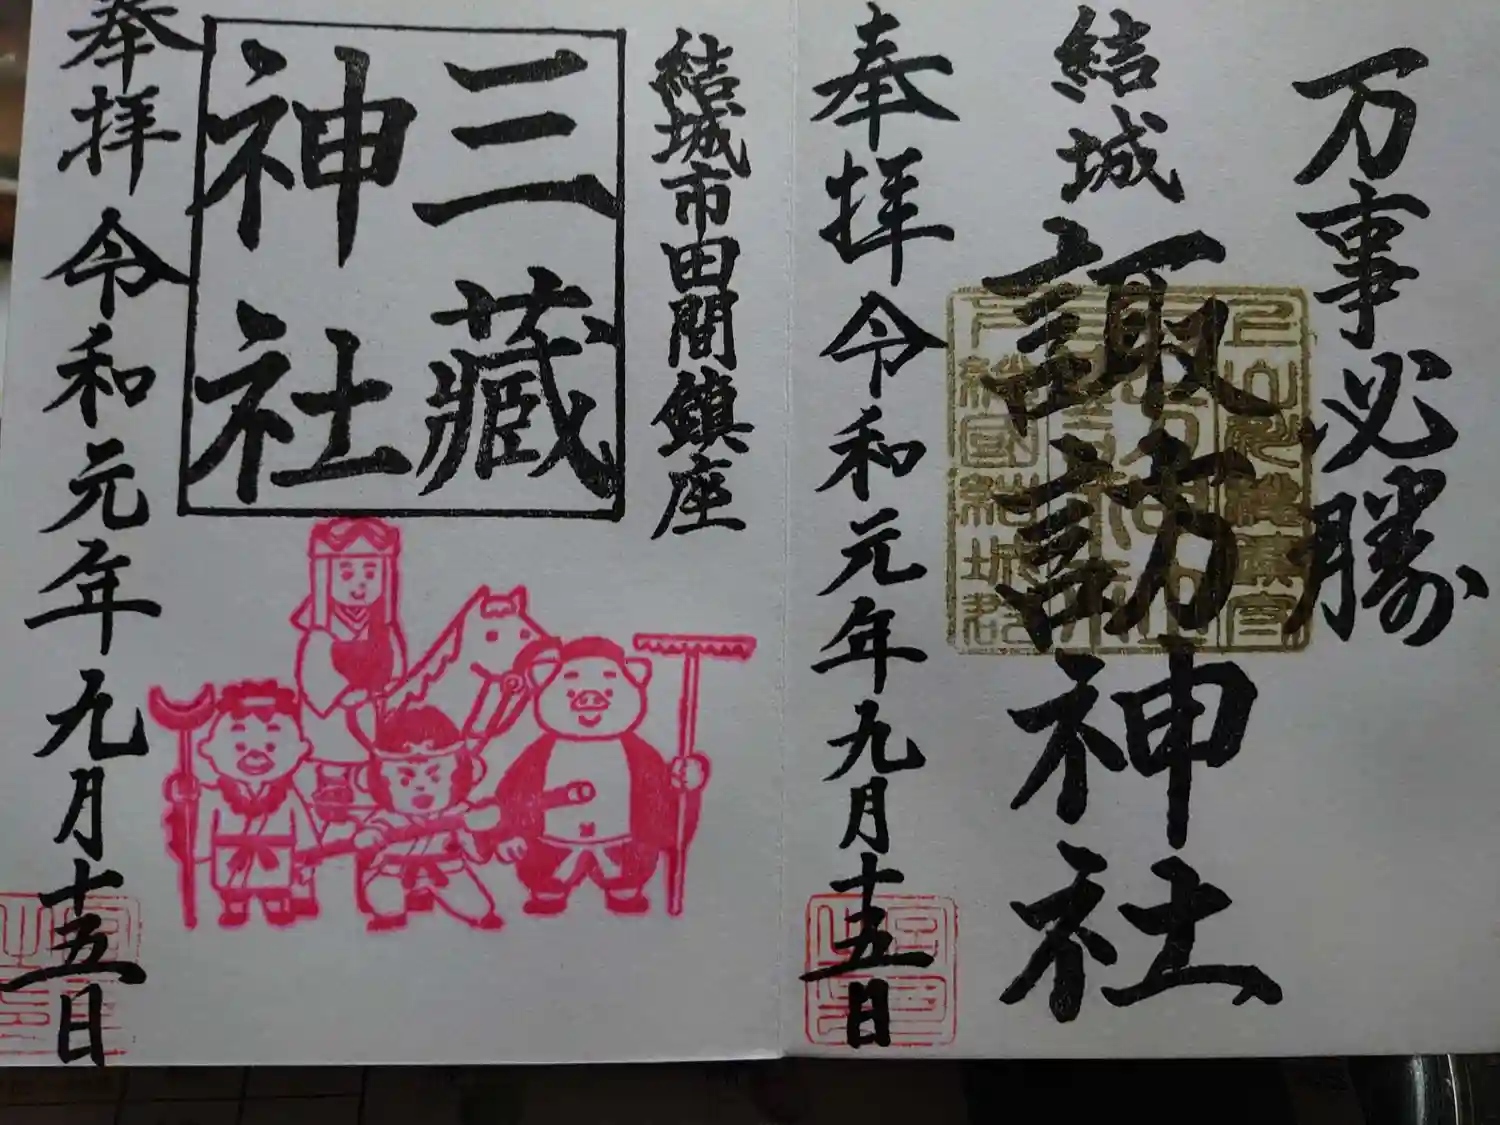 万事必勝
結城
諏訪神社
奉拝 令和元年九月十五日
結城市田間鎮座
三蔵
神社
奉拝 令和元年九月十五日